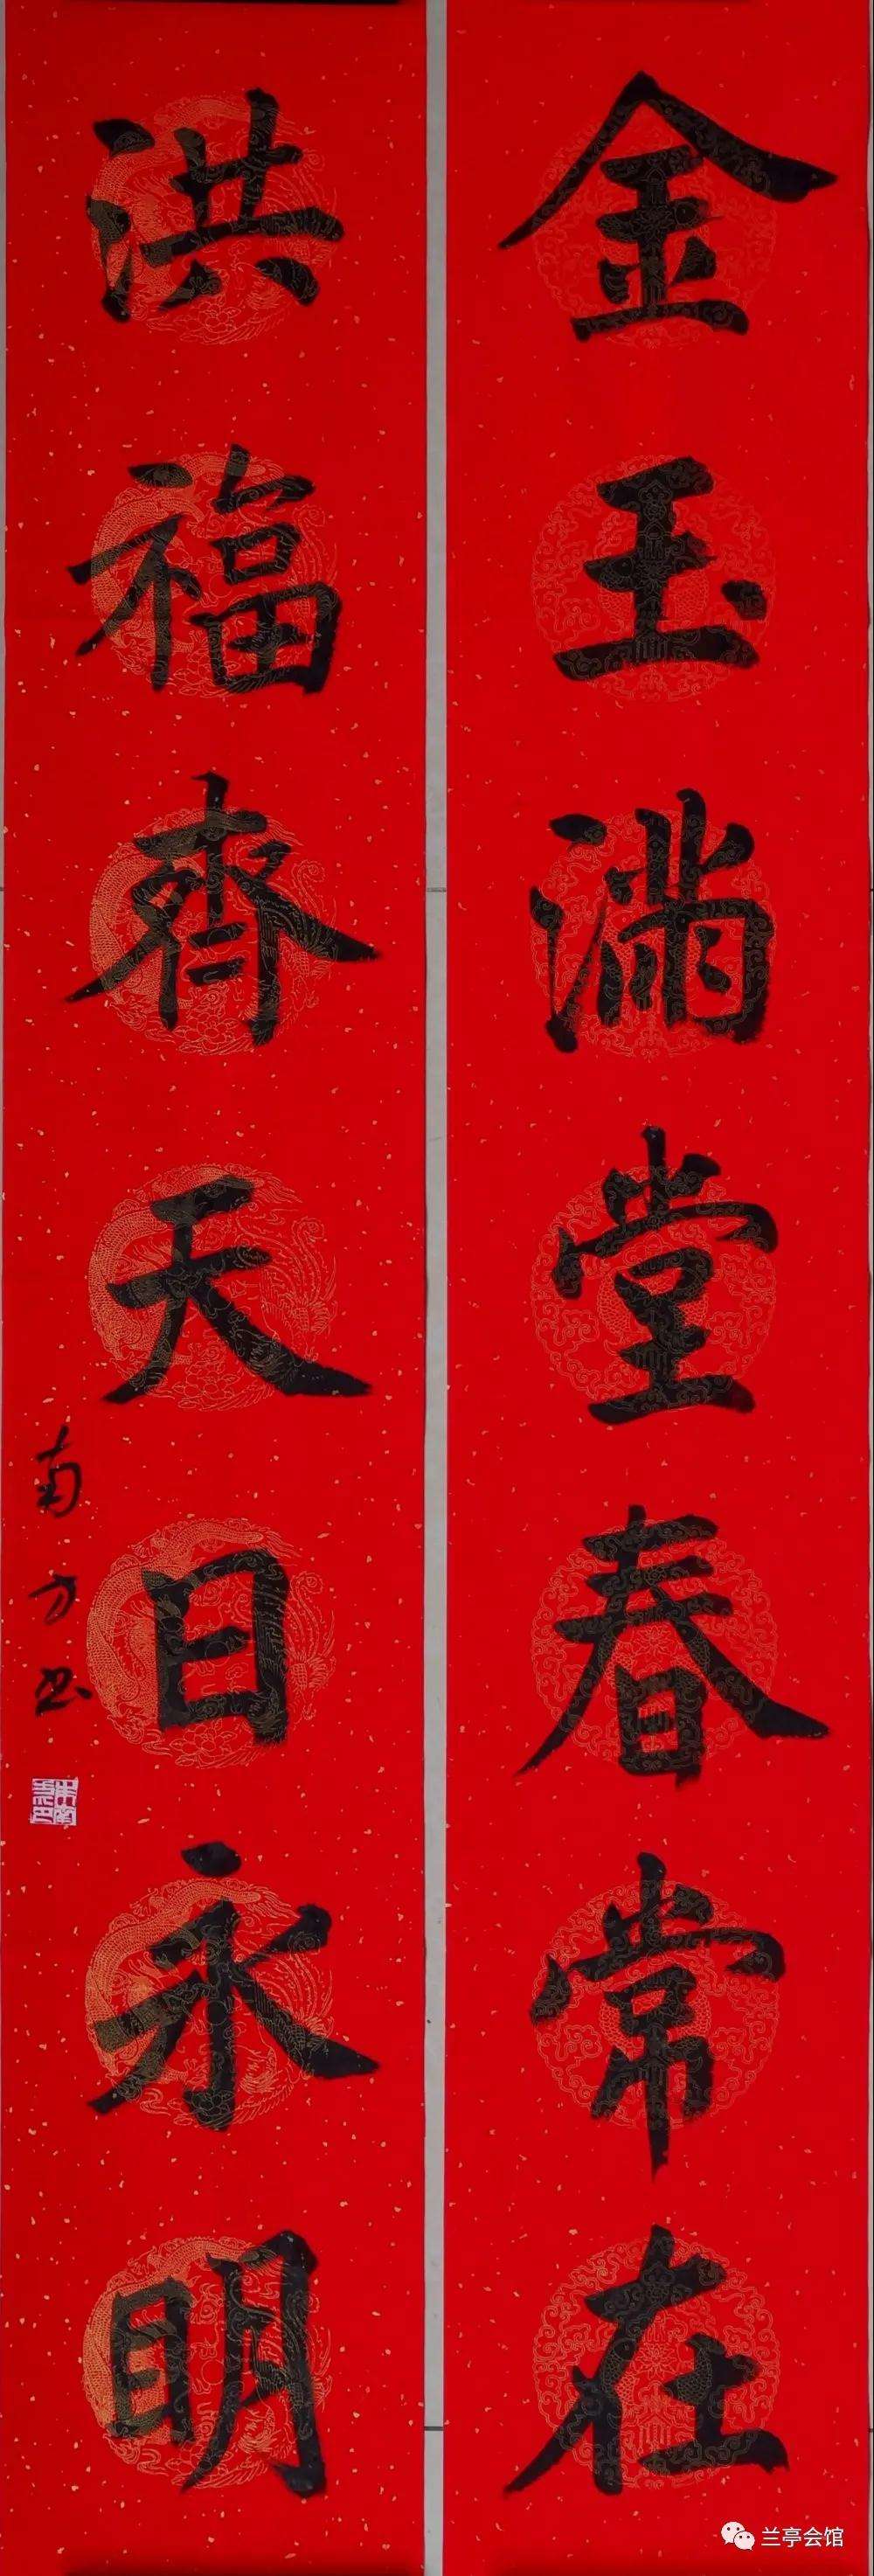 金玉满堂春常在
洪福齊天日永明
南方书
兰亭会馆